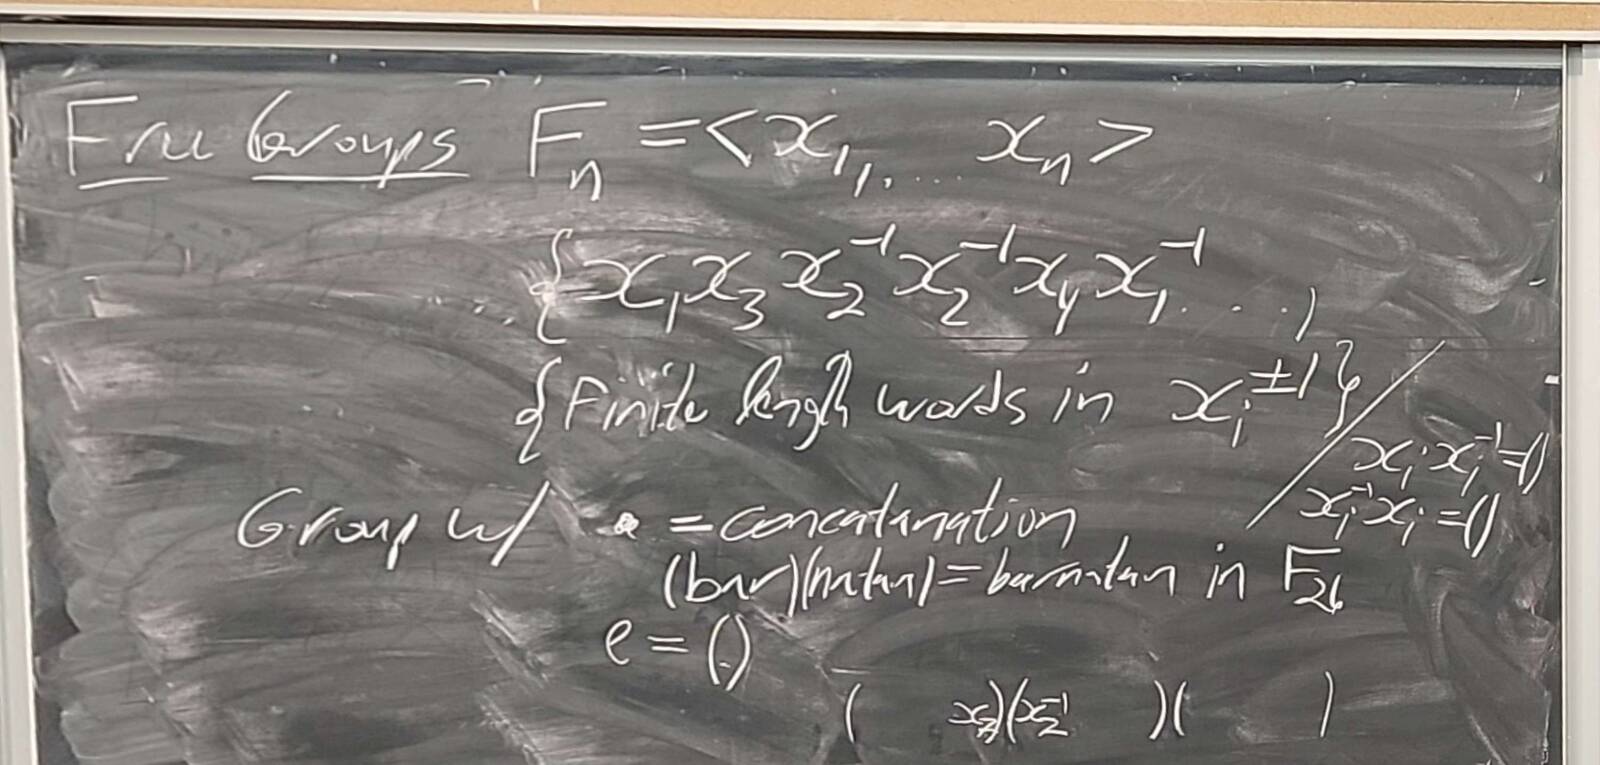 Free Groups F_n = <x_1,... x_n>
{x_1 x_3 x_2^-1 x_2^-1 x_4 x_1^-1 ...,
{Finite length words in x_i^±1} /
x_i x_i^-1 = ()
x_i^-1 x_i = ()
Group w/ • = concatanation
(bar)(natan) = barnatan in F_26
e = ()
( x_2)(x_2^-1 )( )